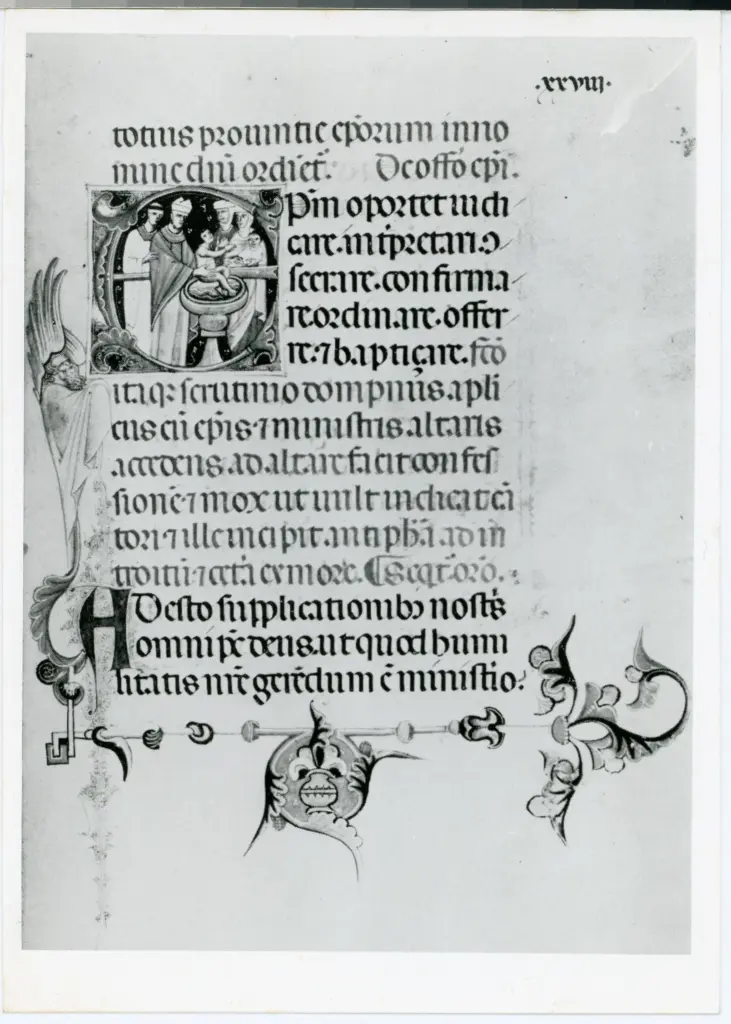 .xxviii.
totius prouintie ep̄orum in no
mine dn̄i ordiet᷑. De offō ep̄i.
Ep̄m oportet iudi
care. int̄pretari. ↄ
secrare. confirma
re. ordinare. offer
re. ⁊ baptiçare. fc̄o
itaq; scrutinio dompnus apli
cus cū ep̄is ⁊ ministris altaris
accedens ad altare facit confes
sionē ⁊ mox ut uult indicat cā
tori ⁊ ille incipit antiph̄ā ad in
troitū ⁊ cet̄a ex more. ¶ Seq̄t᷑ orō.
ADesto supplicationib᷒ nost̄s
omnip̄c deus. ut quod humi
litatis nr̄e gerēdum ē ministio.